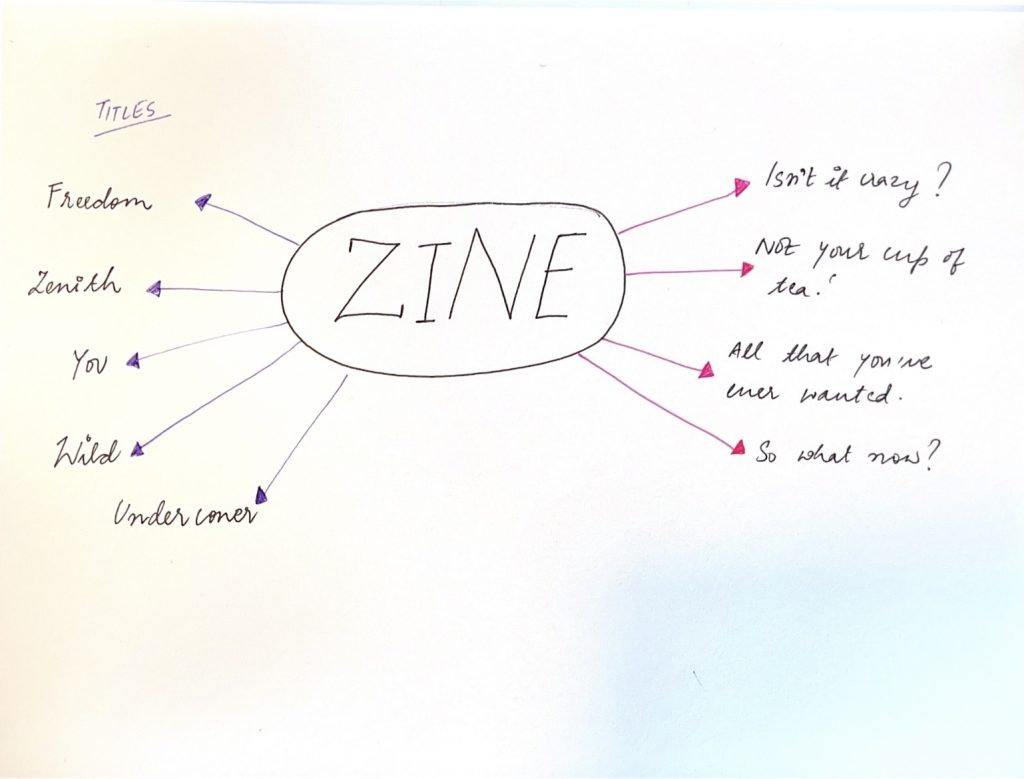 TITLES
Freedom
Zenith
You
Wild
Undercover
ZINE
Isn't it crazy?
Not your cup of
tea!
All that you've
ever wanted.
So what now?